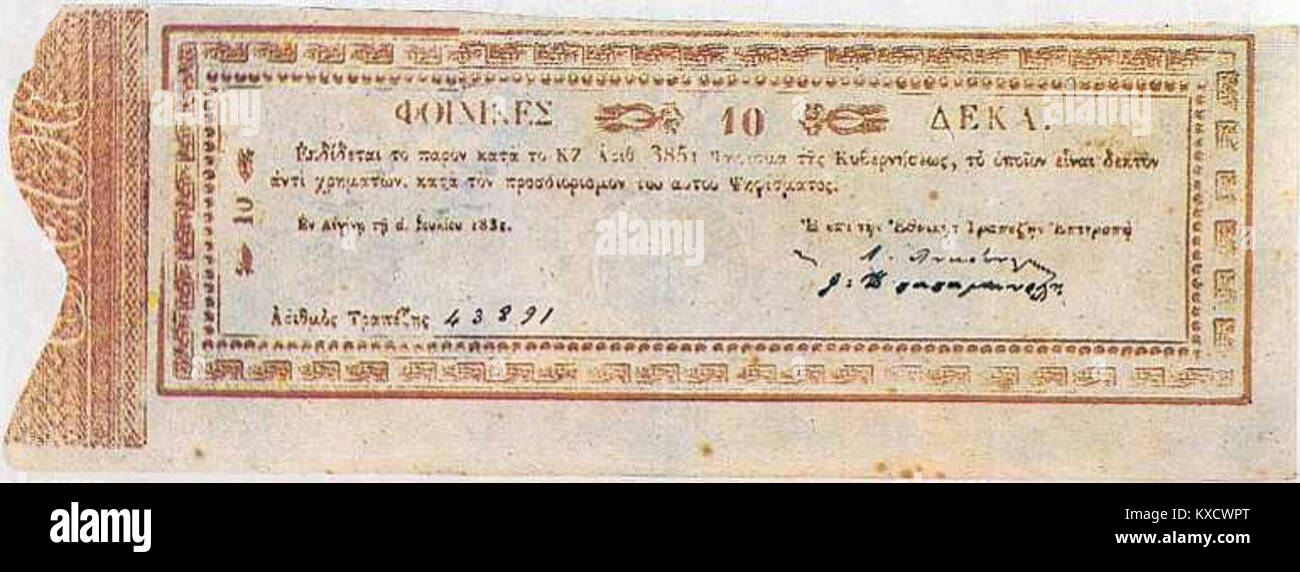 ΦΟΙΝΙΚΕΣ 10 ΔΕΚΑ.
Ἐκδίδεται το παρον κατα το ΚΖ Ἀριθ. 3851 Ψήφισμα τῆς Κυβερνήσεως, τὸ ὁποῖον εἶναι δεκτὸν
ἀντὶ χρημάτων, κατὰ τὸν προσδιορισμὸν του αυτου Ψηφίσματος.
10
Ἐν Αἰγίνῃ τῇ Ἰουλίου 1831.
Ἡ επι τῆς Ἐθνικῆς Τραπέζης Ἐπιτροπή
Ἀριθμὸς Τραπέζης 43891
alamy
Image ID: KXCWPT
www.alamy.com